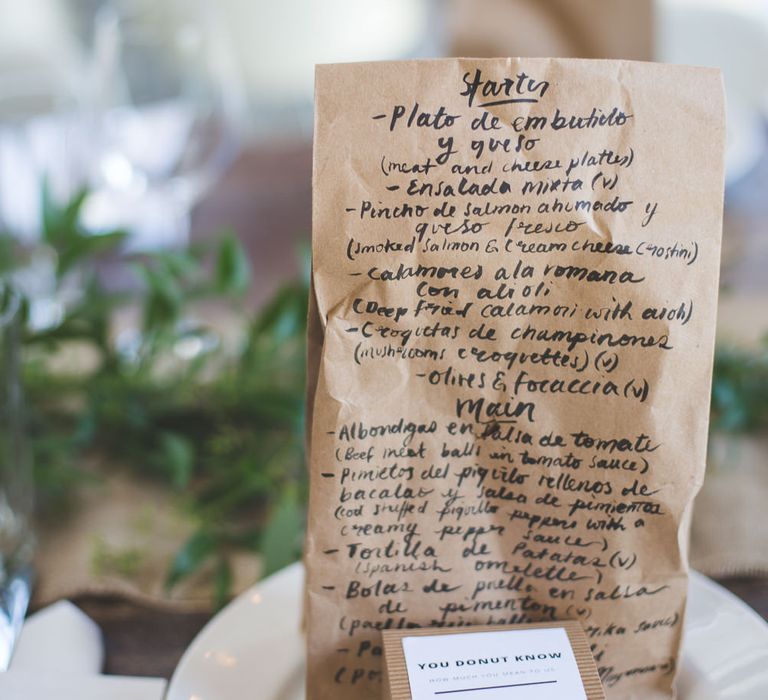 Starter
- Plato de embutido
y queso
(meat and cheese platter)
- Ensalada mixta (v)
- Pincho de salmon ahumado y
queso fresco
(smoked salmon & cream cheese crostini)
- Calamores a la romana
con ali oli
(Deep fried calamari with aioli)
- Croquetas de champinones
(mushrooms croquettes) (v)
- Olives & focaccia (v)
Main
- Albondigas en salsa de tomate
(Beef meat balls in tomato sauce)
- Pimietos del piquillo rellenos de
bacalao y salsa de pimientos
(cod stuffed piquillo peppers with a
creamy pepper sauce)
- Tortilla de Patatas (v)
(spanish omelette)
- Bolas de paella en salsa
de pimenton (v)
(paella
sauce)
YOU DONUT KNOW
HOW MUCH YOU MEAN TO US